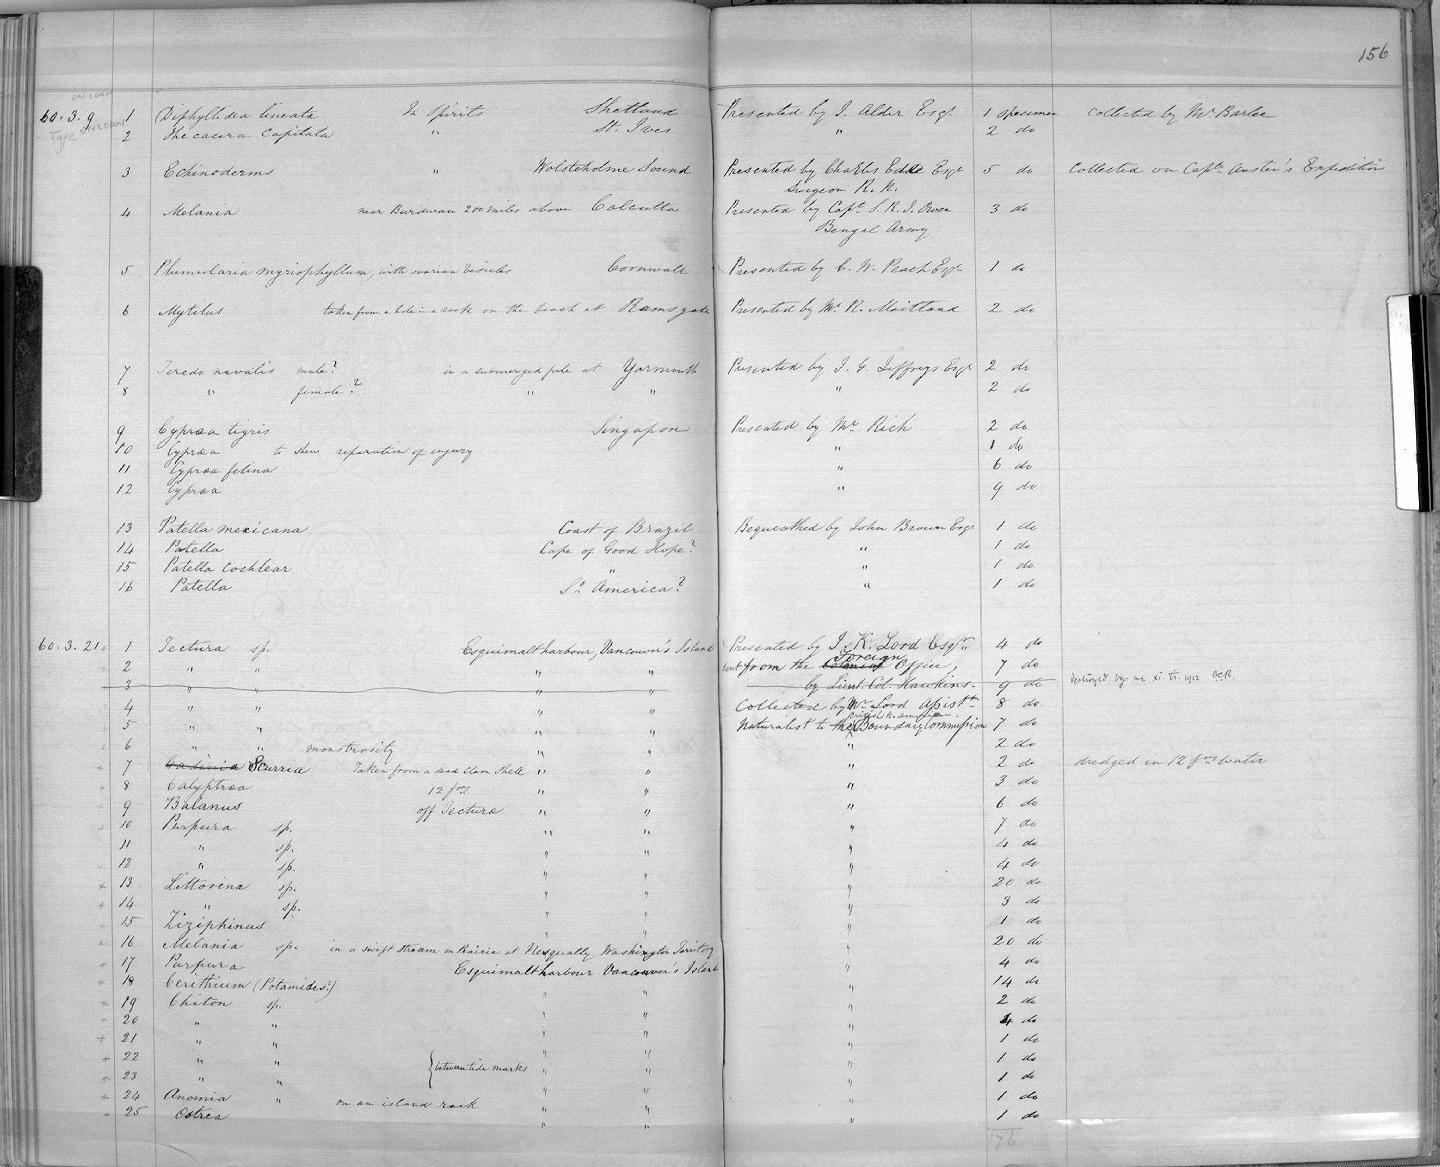 156
ON LOAN
60.3.9 1 Diphyllidea lineata In spirits Shetland Presented by J. Alder Esqr. 1 specimen Collected by Mr. Barlee
Type ON LOAN
2 Thecacera Capitata " St. Ives " 2 do
3 Echinoderms " Wolsteholme Sound Presented by Charles Ede Esqr 5 do Collected on Captn. Austin's Expedition
Surgeon R.N.
4 Melania near Burdwan 200 miles above Calcutta Presented by Capt. S. R. J. Owen 3 do
Bengal Army
5 Plumularia myriophyllum, with ovarian vesicles Cornwall Presented by C. W. Peach Esqr 1 do
6 Mytilus taken from a hole in a rock on the beach at Ramsgate Presented by Mr. R. Maitland 2 do
7 Teredo navalis male? in a submerged pole at Yarmouth Presented by J. G. Jeffreys Esqr 2 do
8 " female? " " " 2 do
9 Cypræa tigris Singapore Presented by Mr. Rich 2 do
10 Cypræa to shew reparation of injury " 1 do
11 Cypræa felina " 6 do
12 Cypræa " 9 do
13 Patella mexicana Coast of Brazil Bequeathed by John Brown Esqr 1 do
14 Patella Cape of Good Hope? " 1 do
15 Patella cochlear " " 1 do
16 Patella So. America? " 1 do
60.3.21. 1 Tectura sp. Esquimalt harbour, Vancouver's Island Presented by J. K. Lord Esqr. 4 do
2 " " " " from the Foreign Office, 7 do
3 " " " " by Lieut. Col. Hawkins. 9 do Destroyed by me xi.VI.1912 G.C.R.
4 " " " " Collected by Mr. Lord Assistt. 8 do
5 " " " " Naturalist to the British N. american Boundary Commission 7 do
6 " " monstrosity " " " 2 do
7 Scurria Taken from a dead Clam Shell " " " 2 do dredged in 12 fms water
8 Calyptræa 12 fms " " " 3 do
9 Balanus off Tecturæ " " " 6 do
10 Purpura sp. " " " 7 do
11 " sp. " " " 4 do
12 " sp. " " " 4 do
13 Littorina sp. " " " 20 do
14 " sp. " " " 3 do
15 Ziziphinus " " " 1 do
16 Melania sp. in a swift stream in Prairie at Nesqually Washington Territory " 20 do
17 Purpura Esquimalt harbour Vancouver's Island " 4 do
18 Cerithium (Potamides?) " " " 14 do
19 Chiton sp. " " " 2 do
20 " " " " " 4 do
21 " " " " " 1 do
22 " " between tide marks " " " 1 do
23 " " " " " 1 do
24 Anomia " on an island rock " " " 1 do
25 Ostrea " " " 1 do
176